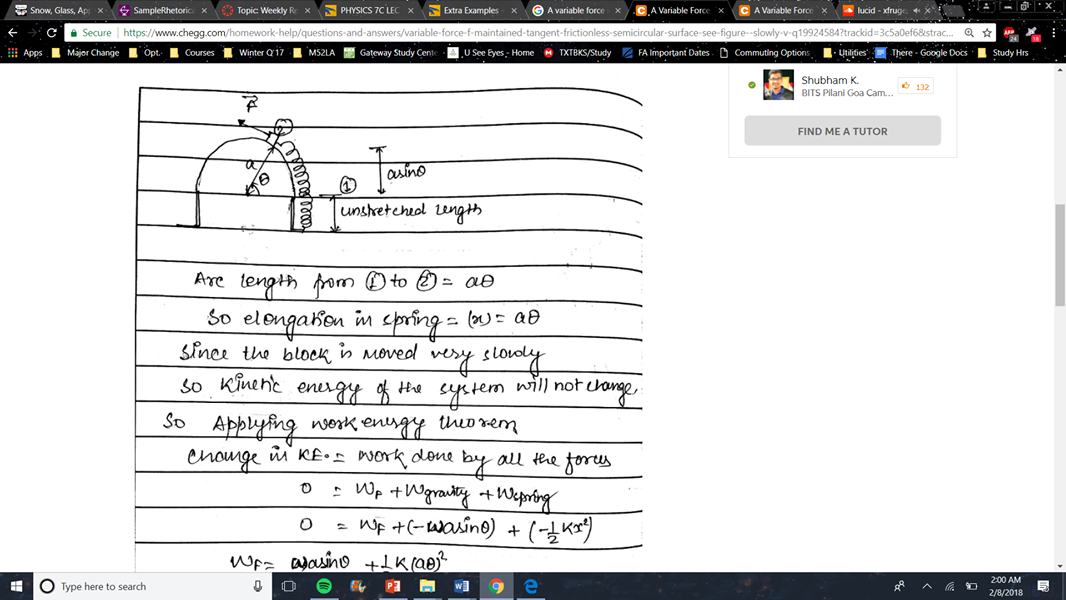 Snow, Glass, Ap
SampleRhetorica
Topic Weekly Re
PHYSICS 7C LEC
Extra Examples -
A variable force
A Variable Force
A Variable Force
lucid - xfruge
Secure
https://www.chegg.com/homework-help/questions-and-answers/variable-force-f-maintained-tangent-frictionless-semicircular-surface-see-figure--slowly-v-q19924584?trackid=3c5a0ef6&strac...
Apps Major Change Opt. Courses Winter Q'17 M52LA Gateway Study Cente U See Eyes - Home TXTBKS/Study FA Important Dates Commuting Options 'Utilities' There - Google Docs Study Hrs
Shubham K.
BITS Pilani Goa Cam...
132
FIND ME A TUTOR
F
2
a
θ
asinθ
1
unstretched length
Arc length from ① to ② = aθ
So elongation in spring = (x) = aθ
Since the block is moved very slowly
So Kinetic energy of the system will not change.
So Applying work energy theorem
Change in KE. = work done by all the forces
0 = WF + Wgravity + Wspring
0 = WF + (-wasinθ) + (-1/2 Kx²)
WF = wasinθ + 1/2 K(aθ)²
Type here to search
2:00 AM
2/8/2018